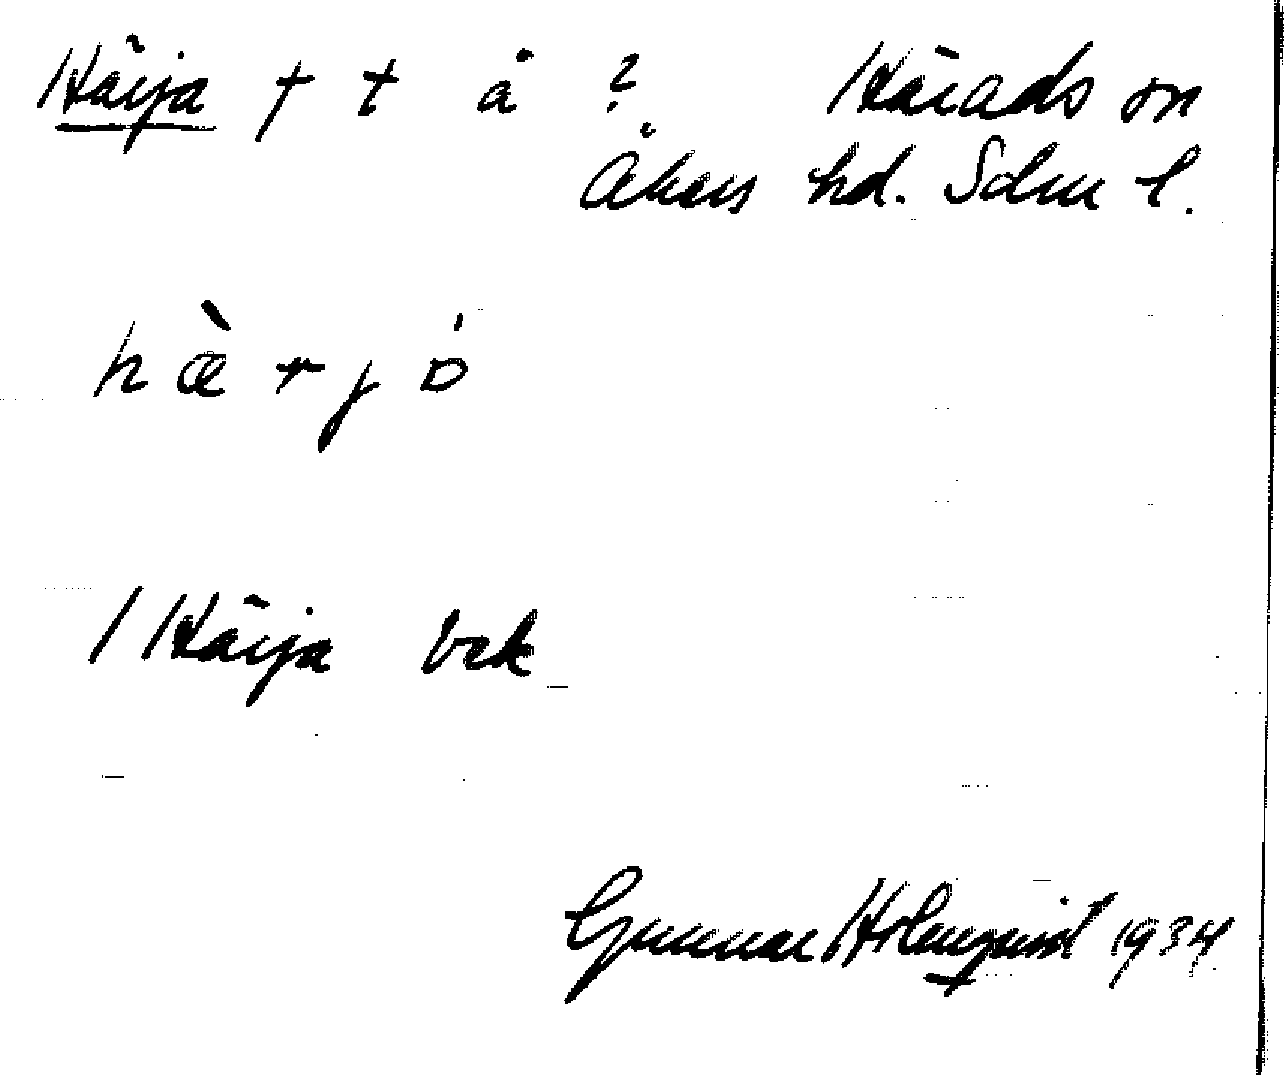 Härja f t å ? Härads sn
Åkers hd. Sdm l.
h æ̀ r j ó
/ Härja bek
Gunnar Holmquist 1934